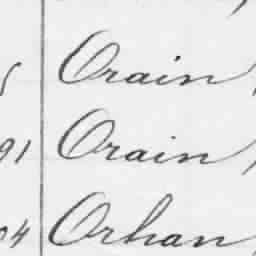 Orain,
91 Orain,
04 Orhan,